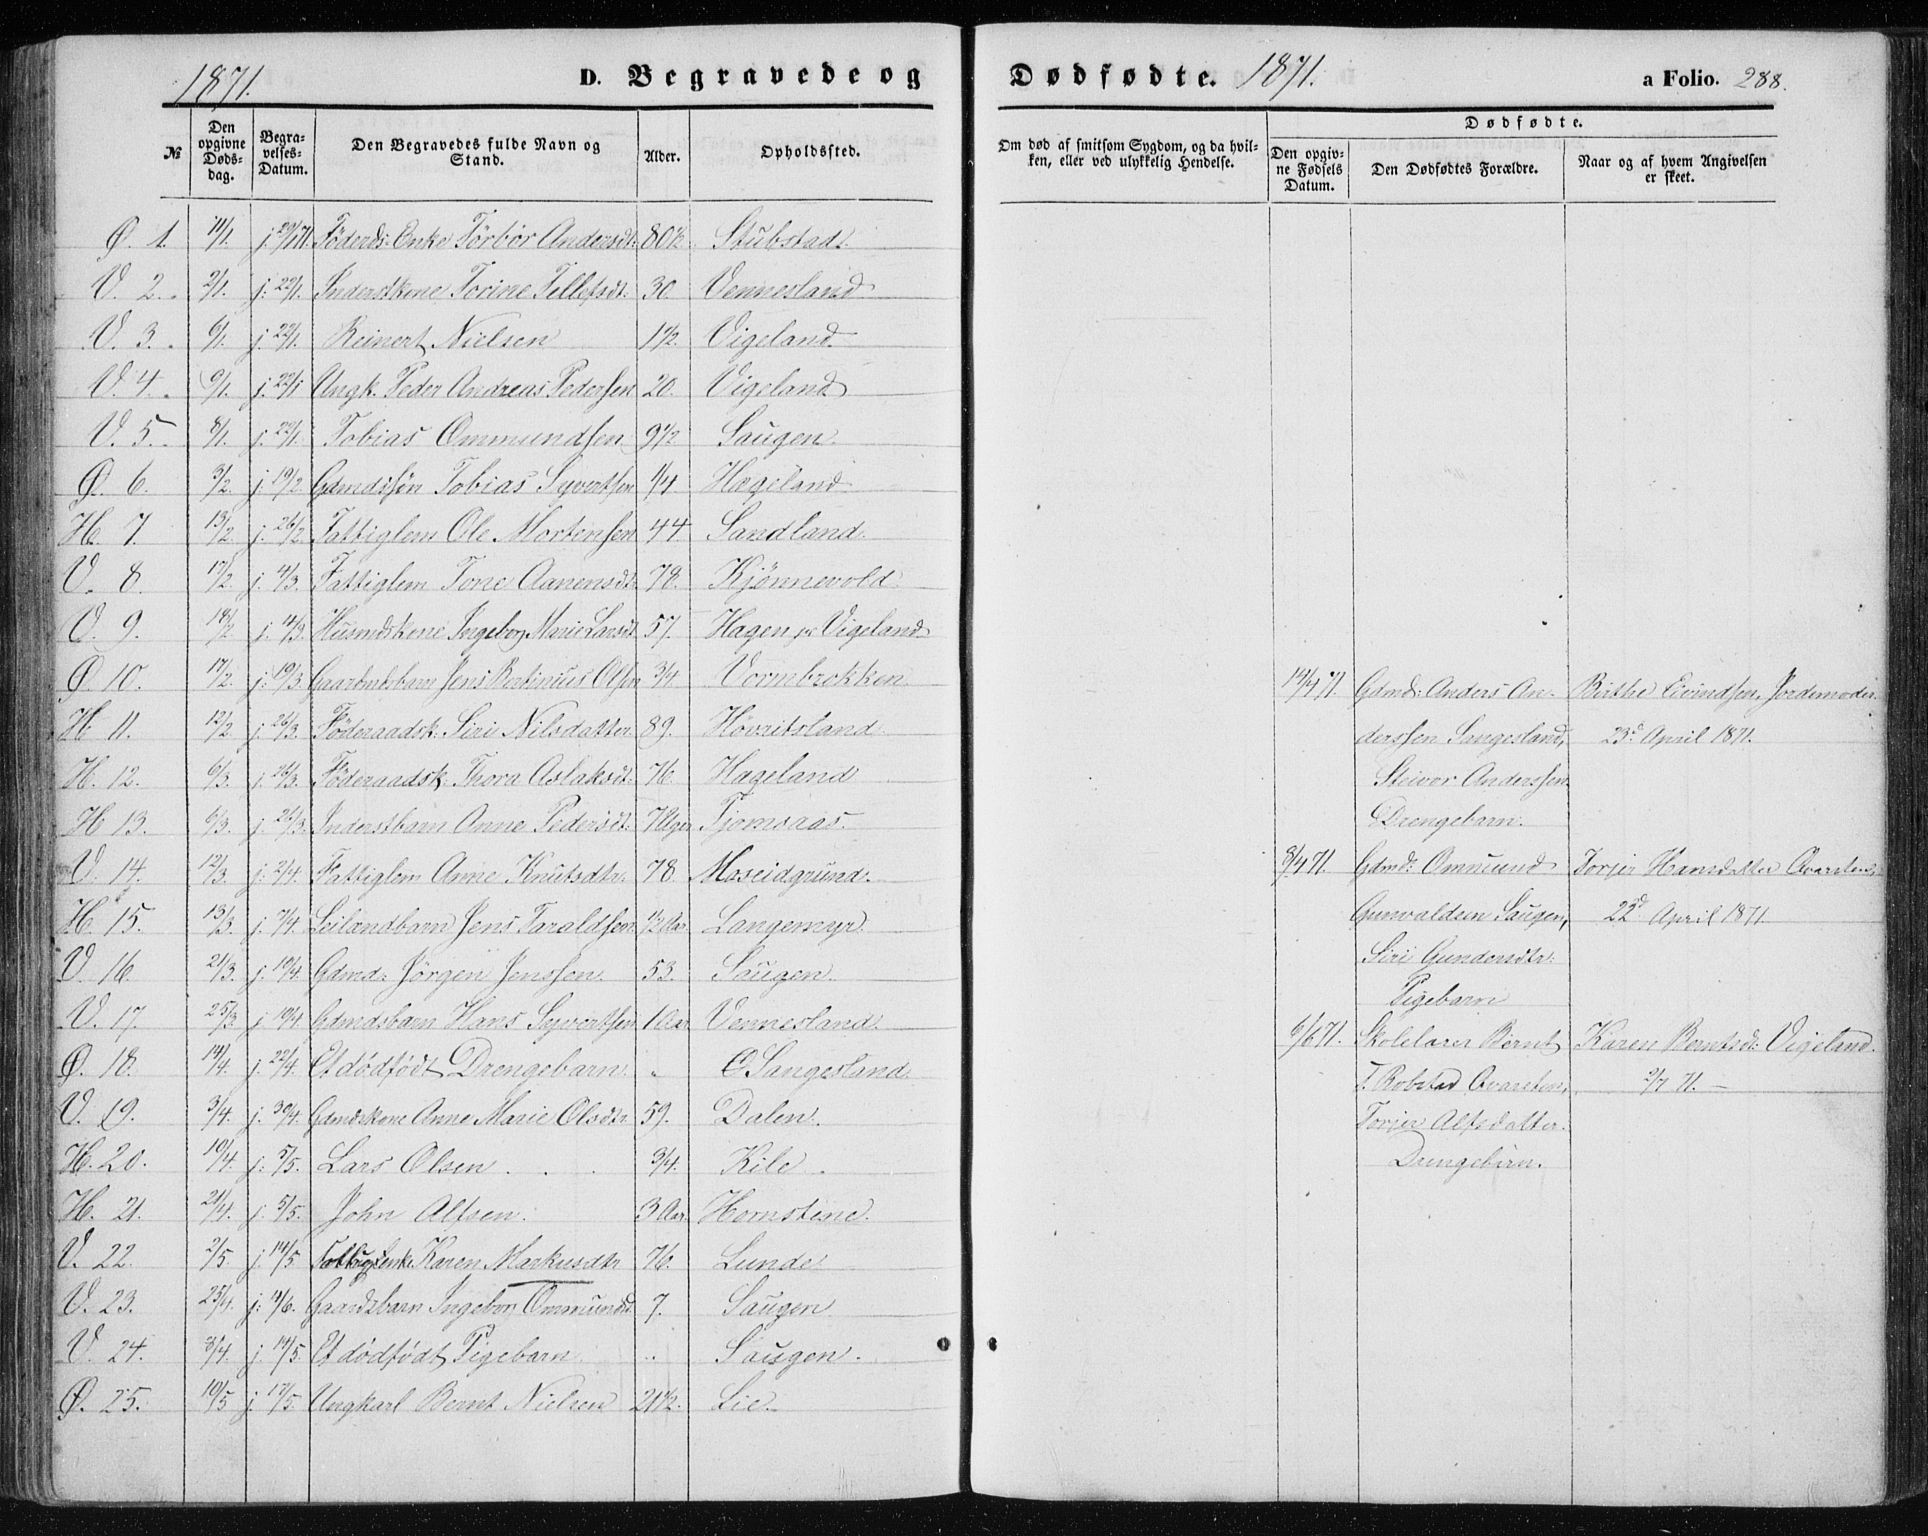 1871.
D. Begravede og
Dødfødte. 1871.
a Folio. 288.
№
Den opgivne Døds-dag.
Begra-velses-Datum.
Den Begravedes fulde Navn og Stand.
Alder.
Opholdssted.
Om død af smitsom Sygdom, og da hvil-ken, eller ved ulykkelig Hendelse.
Dødfødte.
Den opgiv-ne Fødsels Datum.
Den Dødfødtes Forældre.
Naar og af hvem Angivelsen er skeet.
Ø. 1. 11/1. j. 29/1 71. Föderds. Enke Törbör Andersdt. 80½ Stubstad.
V. 2. 2/1. j: 22/1. Inderstkone Torine Tellefsdt. 30. Vennesland
V. 3. 6/1. j. 22/1. Reinert Nielsen 1½. Vigeland.
V. 4. 9/1. j. 22/1 Ungk. Peder Andreas Pedersen 20. Vigeland
V. 5. 8/1. j. 22/1. Tobias Ommundsen 9½. Saugen.
Ø. 6. 3/2. j. 19/2 Gdmdssön Tobias Syvertsen 1/4 Hægeland
H. 7. 13/2 j. 26/2 Fattiglem Ole Mortensen 44. Sandland.
V. 8. 17/2 j. 4/3. Fattiglem Tone Aanensdt. 78. Kjönnevold
V. 9. 18/2 j. 4/3. Husmdskone Ingeborg Marie Larsdt. 57. Hagen pr Vigeland
Ø. 10. 17/2. j: 19/3. Gaardmdsbarn Jens Bertinius Olsen 3/4 Vormbrokken
H. 11. 12/2 j. 26/3. Föderaadsk. Siri Nilsdatter 89. Hövritsland
H. 12. 6/3. j. 26/3. Föderaadsk. Thora Aslaksdt. 76. Hægeland
H 13. 6/3. j. 26/3. Inderstbarn Anne Pedersdt. 7 Uger Tjomsaas.
V. 14. 12/3. j: 2/4. Fattiglem Anne Knutsdtr. 78. Moseidgrund.
H. 15. 13/3 j. 7/4. Leilændbarn Jens Taraldsen ½ Aar. Langemyr.
V. 16. 21/3. j. 10/4. Gdmd: Jörgen Jenssen. 53. Saugen.
V. 17. 25/3 j. 10/4 Gdmdsbarn Hans Syvertsen 1 Aar Vennesland.
Ø. 18. 14/4. j. 22/4. Et dödfödt Drengebarn. " Ø Sangesland
V. 19. 3/4. j. 30/4. Gdmdskone Anne Marie Olsdtr. 59. Dalen.
H. 20. 10/4. j: 5/5. Lars Olsen 3/4. Kile.
H. 21. 21/4. j. 5/5. John Alfsen. 3 Aar. Hornstine.
V. 22. 2/5. j. 14/5 Karen Markusdtr 76. Lunde
V. 23. 25/4. j: 11/6. Gaardsbarn Ingeborg Ommundsd. 7. Saugen
V. 24. 8/4. j. 14/5. Et dödfödt Pigebarn " Saugen.
Ø. 25. 10/5 j. 17/5. Ungkarl Bernt Nielsen 21½. Lie.
14/4 71. Gdmd: Anders An- Birthe Eivindsen, Jordemoder
derssen Sangesland, 23d April 1871.
Steivor Anderssen
Drengebarn.
8/4 71. Gdmd: Ommund Torjer Hansdatter Qvarsten,
Gunvaldsen Saugen, 22d April 1871.
Siri Gundersdtr.
Pigebarn
6/6 71. Skolelærer Bernt Karen Berntsdt. Vigeland.
T. Robstad Qvarsten, 2/7 71. —
Torjer Alfsdatter.
Drengebarn.